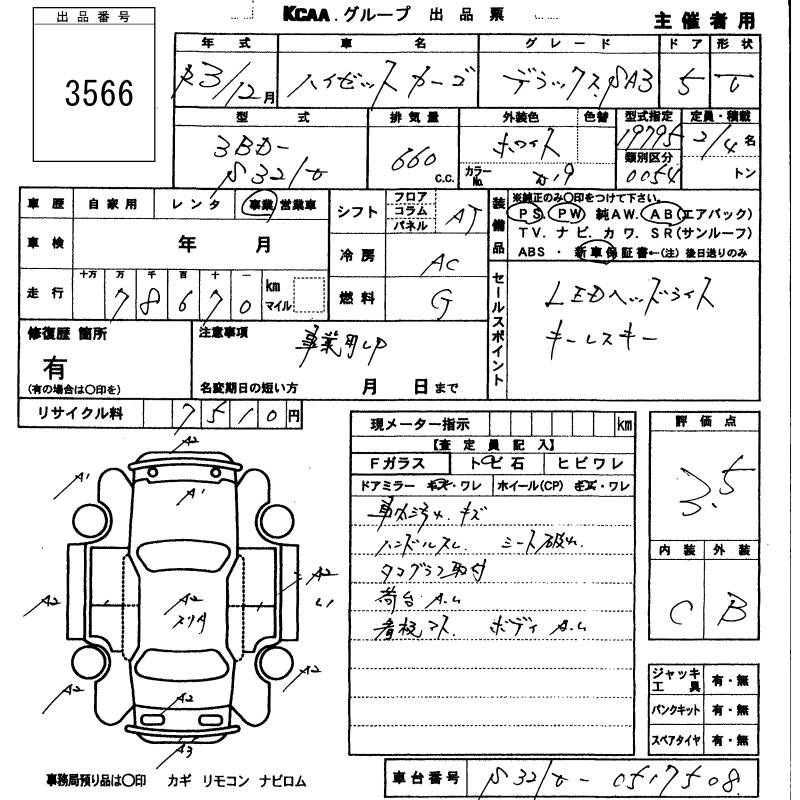 出品番号
3566
KCAA.グループ 出品票
主催者用
年式 車名 グレード ドア 形状
R3/12月 ハイゼットカーゴ デラックスSA3 5 V
型式 排気量 外装色 色替 型式指定 定員・積載
3BD- 660 c.c. ホワイト 19795 2/4名
S321V カラーNo. W19 類別区分 0054 トン
車歴 自家用 レンタ 事業 営業車
シフト フロア コラム パネル AT
車検 年 月
冷房 AC
走行 十万 万 千 百 十 一 km マイル
78670
燃料 G
装備品
※純正のみ○印をつけて下さい。
PS. PW 純AW. AB(エアバック)
TV. ナビ. カワ. SR(サンルーフ)
ABS・新車保証書←(注)後日送りのみ
セールスポイント
LEDヘッドライト
キーレスキー
修復歴 箇所
有
(有の場合は○印を)
注意事項
事業用UP
名変期日の短い方 月 日まで
リサイクル料 7510円
現メーター指示 km
【査定員記入】
Fガラス トビ石 ヒビワレ
ドアミラー キズ・ワレ ホイール(CP) キズ・ワレ
車内汚れ キズ
ハンドルスレ シート破れ
タコグラフ取付
荷台 A.U
看板アト ボディ A.U
評価点
3.5
内装 外装
C B
ジャッキ 工具 有・無
パンクキット 有・無
スペアタイヤ 有・無
A2
A1
A1
A2
A2
A2
A2
A2
A2
A2
A3
事務局預り品は○印 カギ リモコン ナビロム
車台番号 S321V-0517508